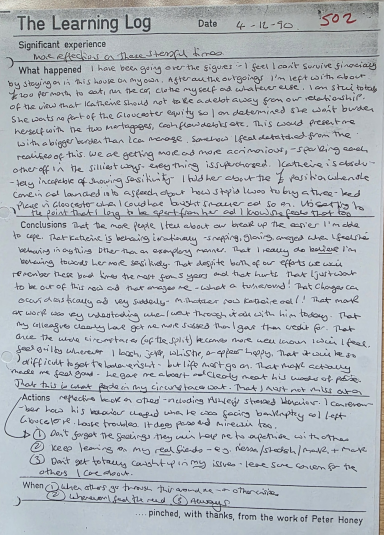 The Learning Log Date 4-12-90 502
Significant experience
More reflections on these stressful times
What happened I have been going over the figures - I feel I can't survive financially
by staying on in this house on my own. After all the outgoings I'm left with about
per month to eat, run the car, clothe myself and whatever else. I am still totally
of the view that Katherine should not take a debt away from our relationship.
She wants no part of the Gloucester equity so I am determined she won't burden
herself with the two mortgages, cash flow debts etc. This would present me
with a bigger burden than I can manage. Somehow I feel detached from the
realities of this. We are getting more and more acrimonious, - sparking each
other off in the silliest ways - everything is supercharged. Katherine is absolu-
tely incapable of showing positivity. I told her about the position when she
came in and launched into a speech about how stupid I was to buy a three-bed
place in Gloucester when I could have bought smaller and so on. It's got
to the point that I long to be apart from her and I know she feels that too
Conclusions That the more people I tell about our break up the easier I'm able
to cope. That Katherine is behaving irrationally - snapping, glaring, angry when I feel she's
behaving in anything other than an exemplary manner. That I really do believe I'm
behaving towards her more sensitively. That despite both of our efforts we will
remember these bad times the most from 5 years and that hurts. That I just want
to be out of this now and that amazes me - what a turnaround! That changes can
occur drastically and very suddenly - That Mark
at work was very understanding when I went through it all with him today. That
my colleagues clearly have got me more sussed than I gave them credit for. That
once the whole circumstances (of the split) become more well known I will feel
guilty whenever I laugh, joke, whistle, or appear happy. That it will be so
difficult to get the balance right - but life must go on. That Mark actually
made me feel good - he gave me a boost and clearly meant his words of praise.
That this is what people in my circumstances want. That I must not miss out on
Actions reflective back on others - including Ashley's stressed behaviour. I can remem-
ber how his behaviour changed when he was facing bankruptcy and left
Gloucester. House troubles. It does pass and mine will too.
① Don't forget the feelings they will help me to empathise with others
② Keep leaning on my real friends - e.g. / / Mark
③ Don't get totally caught up in my issues - leave some concern for the
others I care about.
When ① When others go through this around me - or otherwise
② Whenever I feel the need ③ Always
.... pinched, with thanks, from the work of Peter Honey